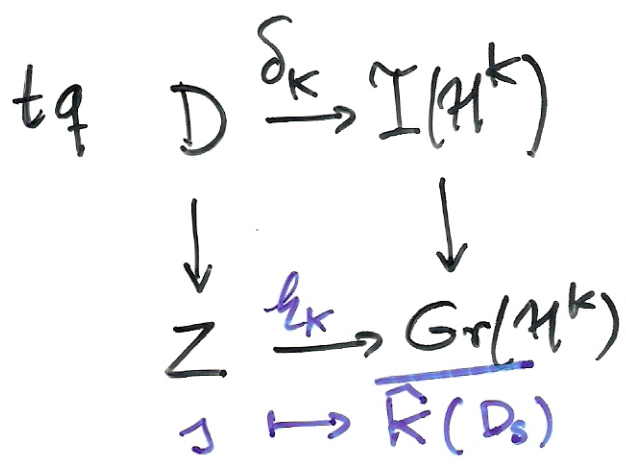 tq D δ_K → T(ℋ^k)
↓ ↓
Z → Gr(ℋ^k)
s ↦ K̂(D_s)